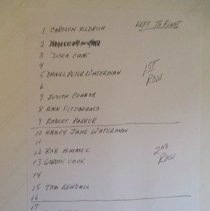 LEFT TO RIGHT
1 CAROLYN ALDRICH
2
3 "DORA COOK"
4
5 DANIEL PETER WATERMAN
6
1ST ROW
7 JUDITH CONNOR
8 ANN FITZGERALD
9 ROBERT PARKER
10 NANCY JANE WATERMAN
11
12 BOB HAMMEL
2ND ROW
13 GORDON COOK
14
15 TOM KENDALL
16
17